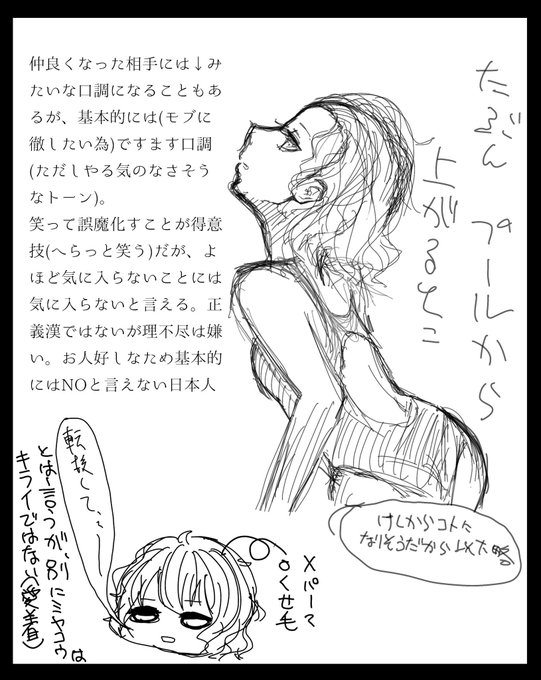 仲良くなった相手には↓み
たいな口調になることもあ
るが、基本的には(モブに
徹したい為)ですます口調
(ただしやる気のなさそう
なトーン)。
笑って誤魔化すことが得意
技(へらっと笑う)だが、よ
ほど気に入らないことには
気に入らないと言える。正
義漢ではないが理不尽は嫌
い。お人好しなため基本的
にはNOと言えない日本人
たぶん プールから
上がるとこ
けしからんコトに
なりそうだから
転校して〜
とは言うが、別にミヤコウは
キライではない(愛着)
×パーマ
○くせ毛